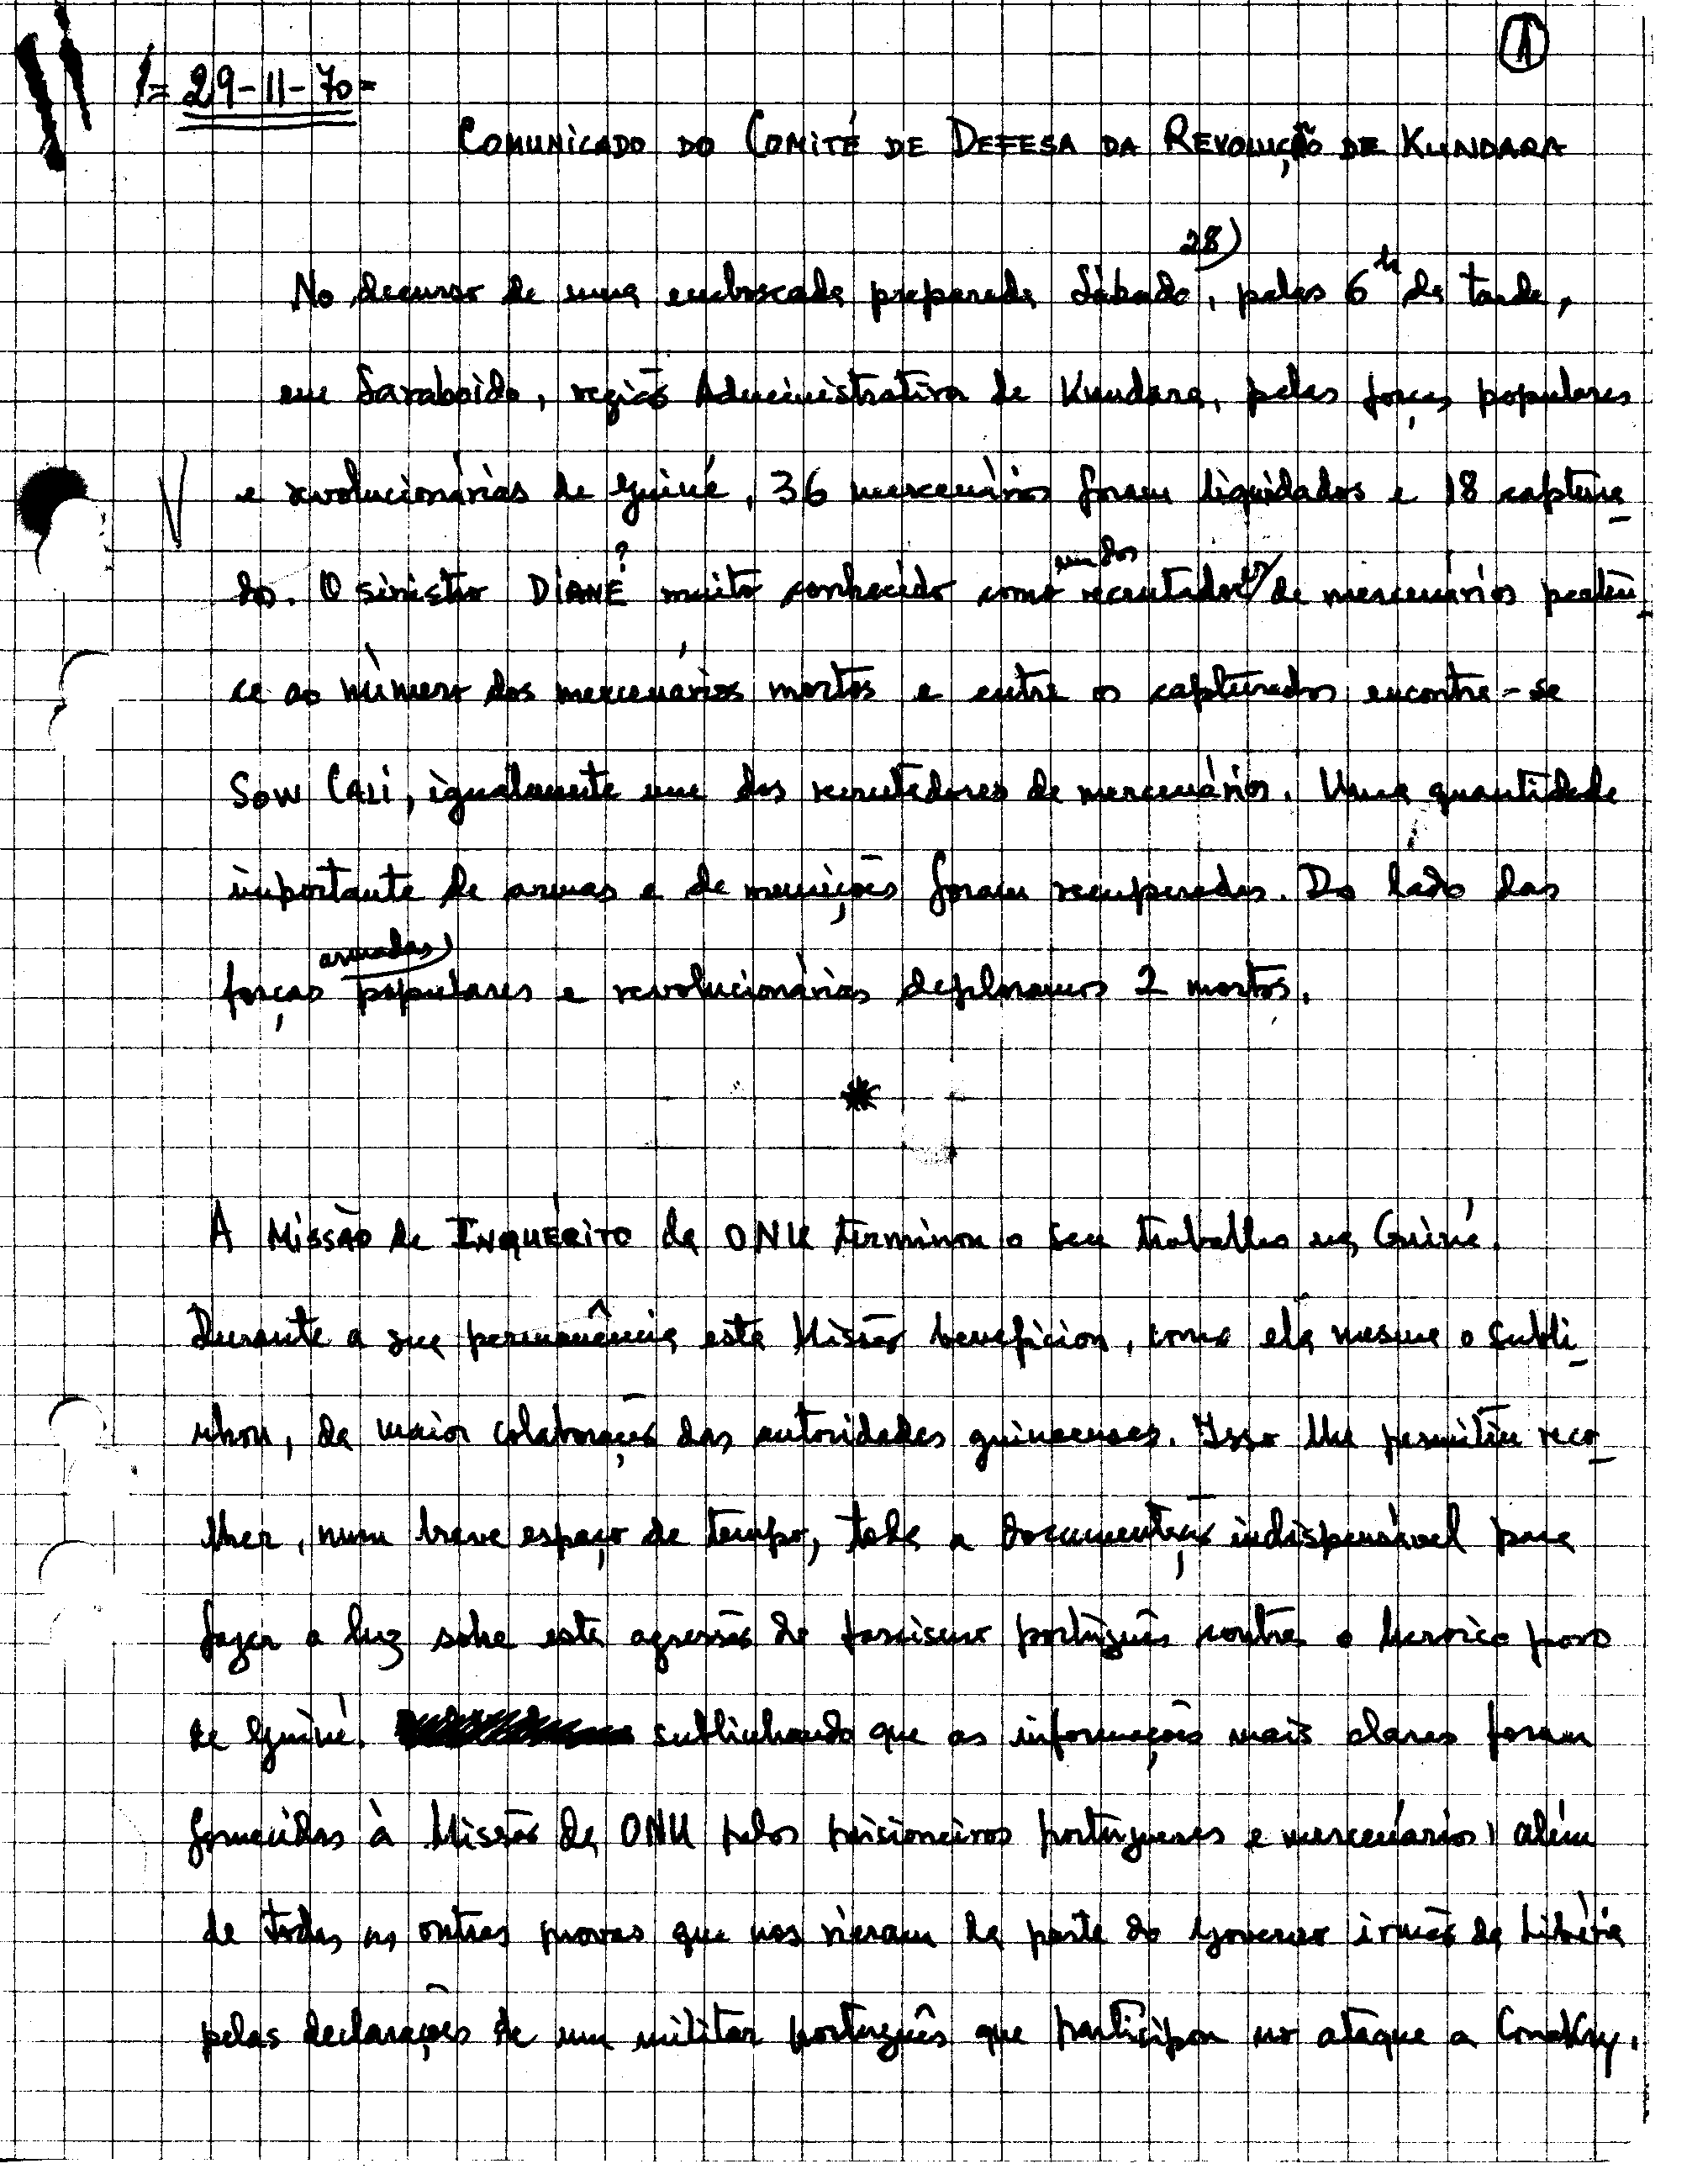 1
= 29-11-70 =
COMUNICADO DO COMITÉ DE DEFESA DA REVOLUÇÃO DE KUNDARA
28)
No decurso de uma emboscada preparada Sábado, pelas 6h da tarde,
em Saraboido, região Administrativa de Kundara, pelas forças populares
e revolucionárias da Guiné, 36 mercenários foram liquidados e 18 captura-
? um dos
dos. O sinistro DIANÉ muito conhecido como recrutador de mercenários perten-
ce ao número dos mercenários mortos e entre os capturados encontra-se
SOW CALI, igualmente um dos recrutadores de mercenários. Uma quantidade
importante de armas e de munições foram recuperadas. Do lado das
armadas)
forças populares e revolucionárias deploramos 2 mortos.
*
A MISSÃO de INQUÉRITO da ONU terminou o seu trabalho na Guiné.
Durante a sua permanência esta Missão beneficiou, como ela mesma o subli-
nhou, da maior colaboração das autoridades guineenses. Isso lhe permitiu reco-
lher, num breve espaço de tempo, toda a documentação indispensável para
fazer a luz sobre esta agressão do fascismo português contra o heroico povo
da Guiné. sublinhando que as informações mais claras foram
fornecidas à Missão da ONU pelos prisioneiros portugueses e mercenários, além
de todas as outras provas que nos vieram da parte do Governo irmão da Libéria
pelas declarações de um militar português que participou no ataque a Conakry.